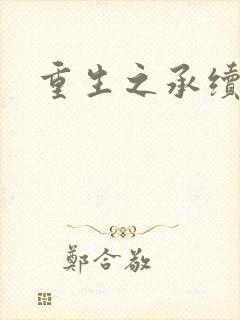 重生之承續
鄭合敬